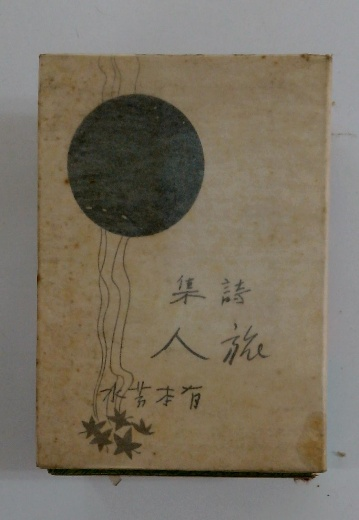 詩集
旅人
有本芳水